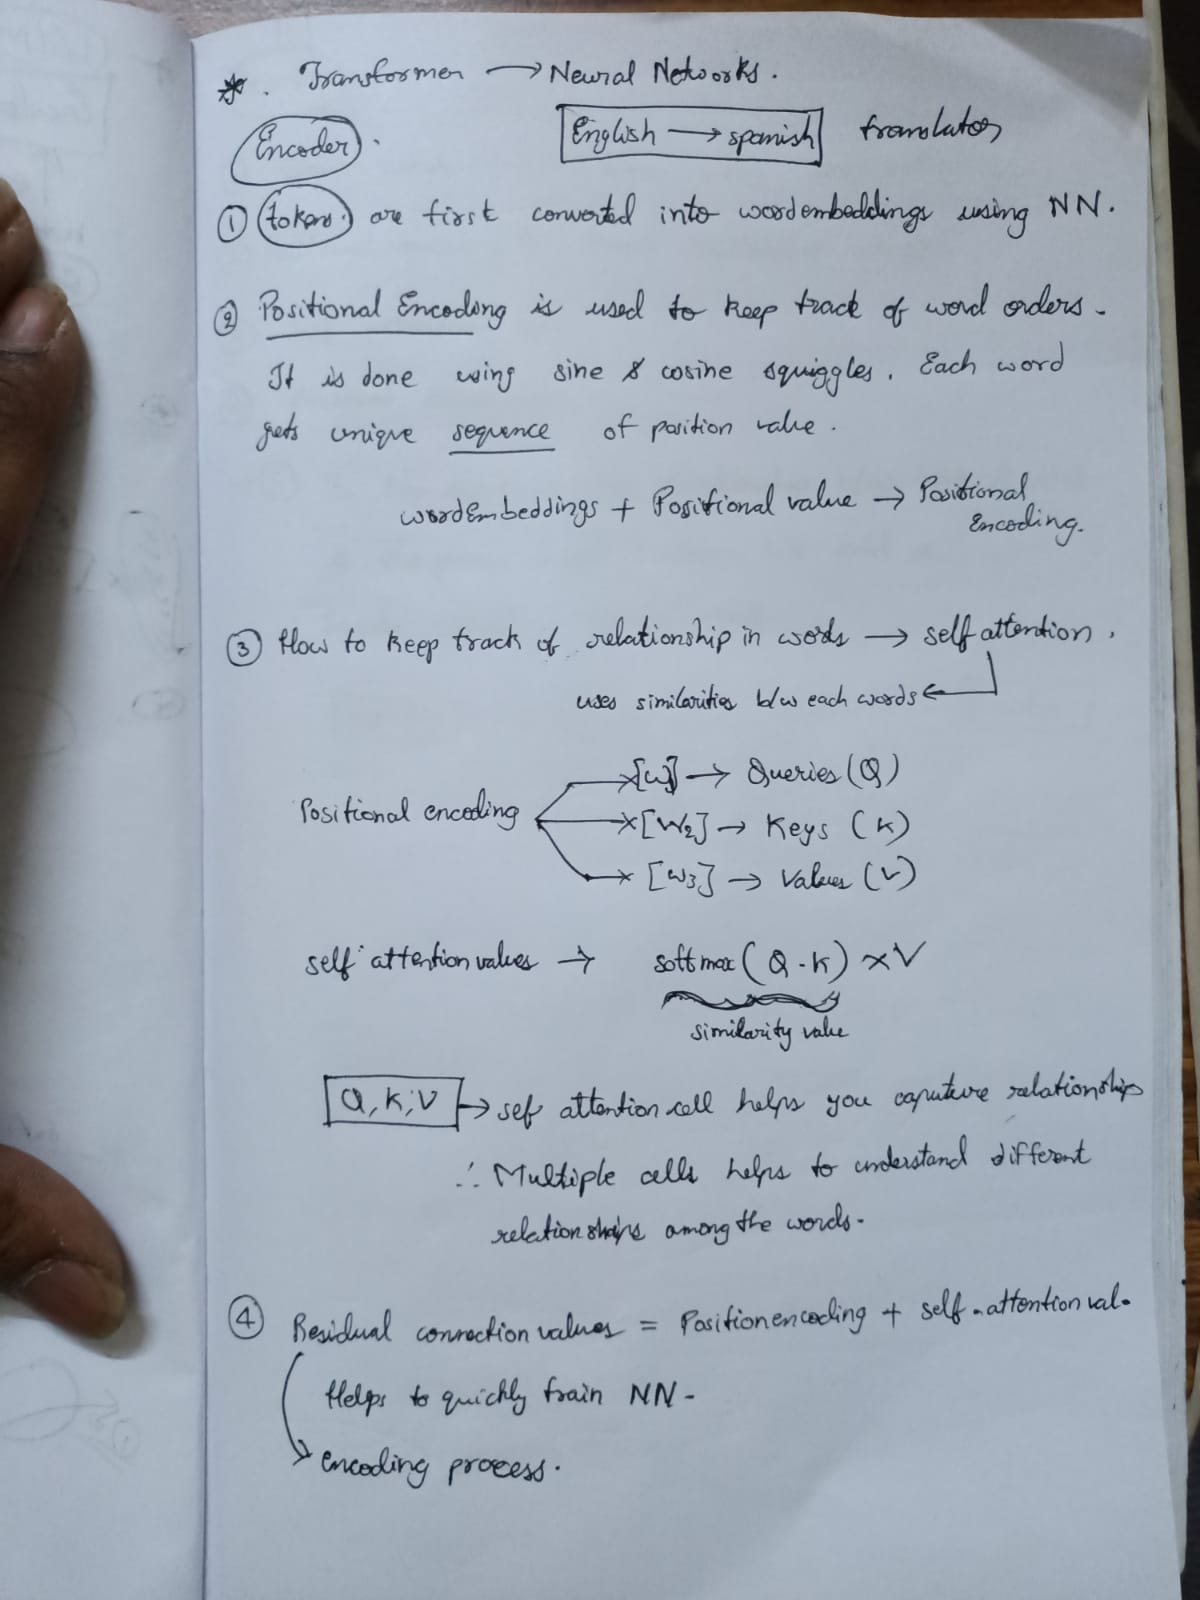 * . Transformer → Neural Networks.
Encoder. English → spanish translator
① tokens. are first converted into wordembeddings using NN.
② Positional Encoding is used to keep track of word orders.
It is done using sine & cosine squiggles. Each word
gets unique sequence of position value.
wordEmbeddings + Positional value → Positional
Encoding.
③ How to keep track of relationship in words → self attention.
uses similarities b/w each words
×[W] → Queries (Q)
Positional encoding ×[W2] → Keys (K)
× [W3] → Values (V)
self attention values → softmax (Q · K) × V
similarity value
Q, K, V → self attention cell helps you caputure relationships
∴ Multiple cells helps to understand different
relationships among the words.
④ Residual connection values = Position encoding + self-attention val.
Helps to quickly train NN -
encoding process.